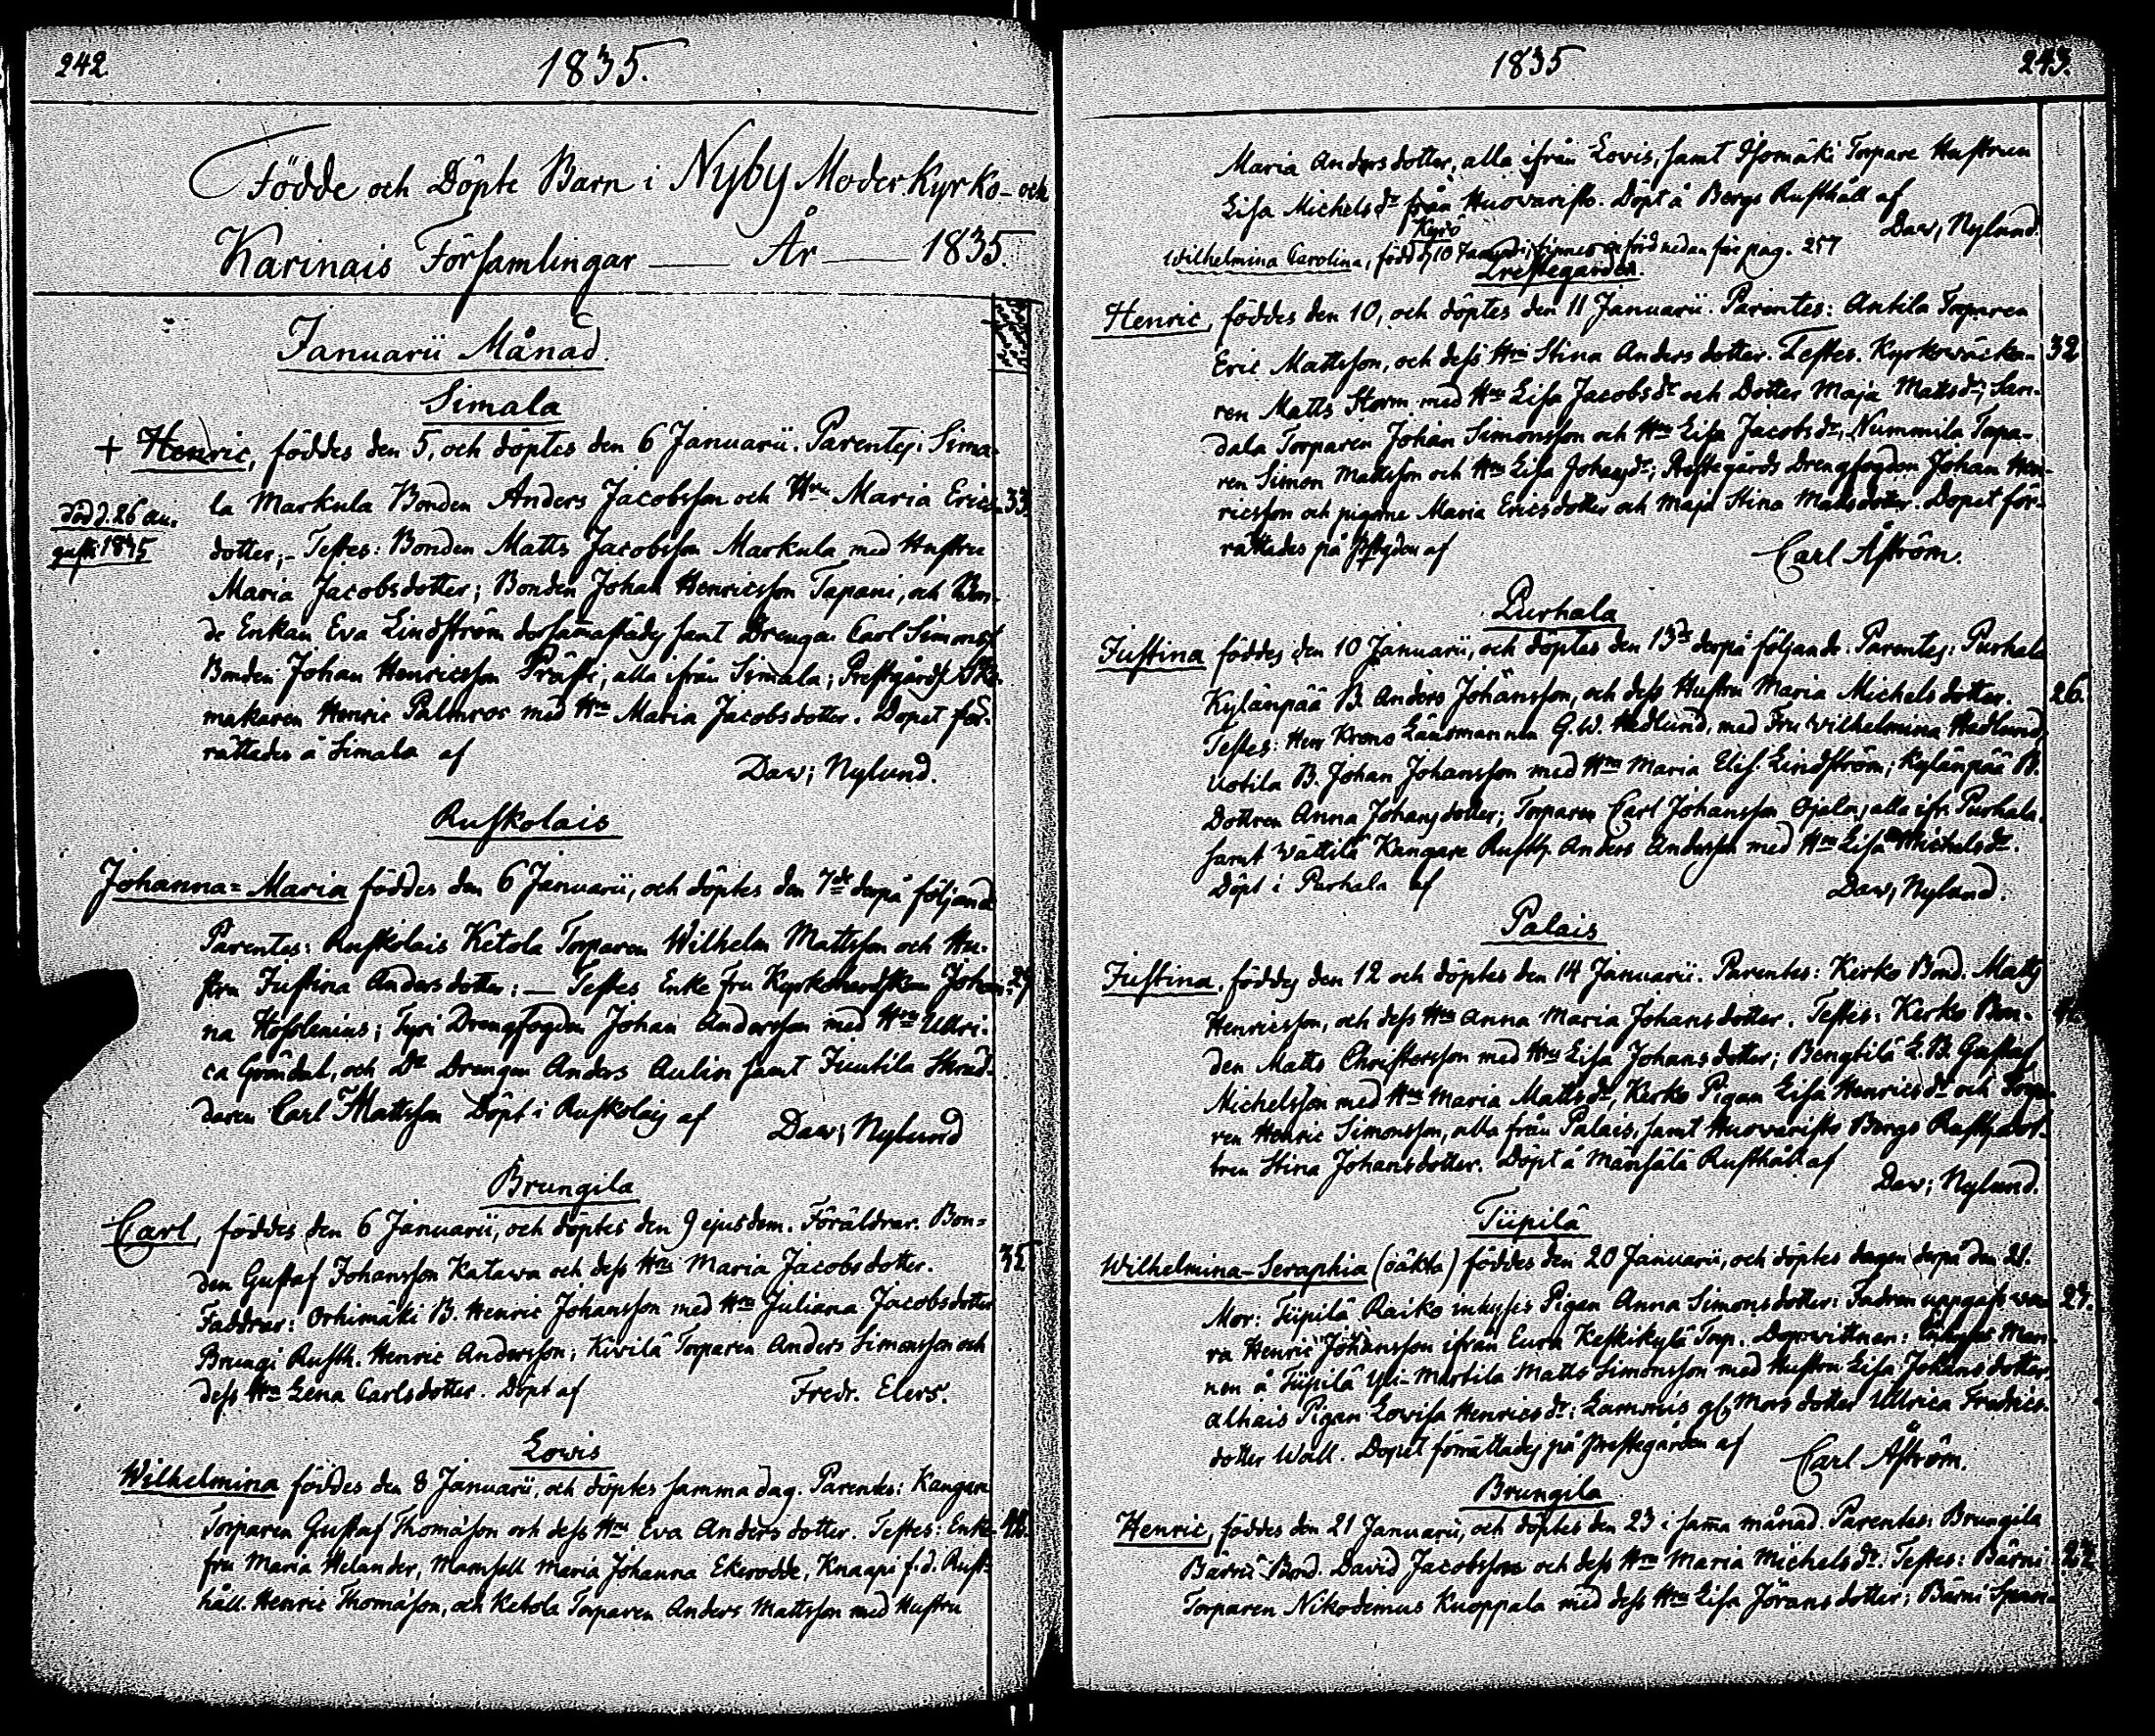 242.
1835.
Födde och Döpte Barn i Nyby Moder Kyrko- och
Karinais Församlingar — År — 1835.
Januarii Månad.
Simala
+ Henric, föddes den 5, och döptes den 6 Januarii. Parentes: Sima-
la Markula Bonden Anders Jacobsson och Hru Maria Erics- 33.
död d. 26 au-
gusti 1835
dotter;- Testes: Bonden Matts Jacobsson Markula med Hustru
Maria Jacobsdotter; Bonden Johan Henricsson Tapani, och Bon-
de Enkan Eva Lindström dersammastädes samt Drengar Carl Simonss
Bonden Johan Henricsson Prästi, alla ifrån Simala; Prestgårds Sko-
makaren Henric Palmros med Hru Maria Jacobsdotter. Dopet för-
rättades å Simala af
Daw; Nylund.
Ruskolais
Johanna=Maria föddes den 6 Januarii, och döptes den 7de derpå följande
Parentes: Ruskolais Ketola Torparen Wilhelm Mattsson och Hu-
stru Justina Andersdotter: — Testes Enke Fru Kyrkoherdskan Johan- 29
na Hoffrenius; Tyri Drengfogden Johan Andersson med Hru Ullri-
ca Gröndal, och Dt Drengen Anders Aulin samt Juutila Skräd-
daren Carl Mattsson Döpt i Ruskolais af
Daw; Nylund
Brungila
Carl, föddes den 6 Januarii, och döptes den 9 ejusdem. Föräldrar. Bon-
den Gustaf Johansson Katawa och dess Hru Maria Jacobsdotter. 35
Faddrar: Orhimäki B. Henric Johansson med Hru Juliana Jacobsdotter
Brungi Rusth. Henric Andersson; Kivilä Torparen Anders Simonsson och
dess Hru Lena Carlsdotter. Döpt af
Fredr. Elers.
Lovis
Wilhelmina föddes den 8 Januarii, och döptes samma dag. Parentes: Kangare
Torparen Gustaf Thomasson och dess Hru Eva Andersdotter. Testes: Enke-
fru Maria Helander, Mamsell Maria Johanna Ekerodde, Knaapi f.d. Rust-
håll. Henric Thomasson, och Ketola Torparen Anders Mattsson med Hustru
1835
243.
Maria Andersdotter, alla ifrån Lovis, samt Isomäki Torpare Hustrun
Lisa Michelsdr från Huovaristo. Döpt å Bergs Rusthåll af
Daw; Nylund.
Kyrö
Wilhelmina Carolina, född d. 10 Januari, finnes införd nedan för pag. 257
Prestegården.
Henric, föddes den 10, och döptes den 11 Januarii. Parentes: Antila Torparen
Eric Mattsson, och dess Hru Stina Andersdotter. Testes. Kyrkowäcka- 32
ren Matts Storm med Hru Lisa Jacobsdr och Dotter Maja Mattsdr; San-
dala Torparen Johan Simonsson och Hru Lisa Jacobsdr; Nummila Torpa-
ren Simon Mattsson och Hru Lisa Johansdr; Prestegårds Drengfogden Johan Hen-
ricsson och pigorne Maria Ericsdotter och Maja Stina Mattsdotter. Dopet för-
rättades på Prstgden af
Carl Åström.
Purhala
Justina föddes den 10 Januarii, och döptes den 13de derpå följande. Parentes: Purhala
Kylänpää B. Anders Johansson, och dess Hustru Maria Michelsdotter. 26.
Testes: Herr Krono Länsmannen G. W. Hedlund, med Fru Wilhelmina Hedlund,
Uotila B. Johan Johansson med Hru Maria Elis. Lindström; Kylänpää B.
Dottren Anna Johansdotter; Torparen Carl Johansson Ojala, alla ifr. Purhala.
samt Wättilä Kangare Rusth. Anders Andersson med Hru Lisa Michelsdr.
Döpt i Purhala af
Daw; Nylund.
Palais
Justina, föddes den 12 och döptes den 14 Januarii. Parentes: Kirko Bond. Matts
Henricsson, och dess Hru Anna Maria Johansdotter. Testes: Kerko Bon-
den Matts Christersson med Hru Lisa Johansdotter; Bengtilä L. B. Gustaf
Michelsson med Hru Maria Mattsdr, Kerko Pigan Lisa Henricsdr och Torpa-
ren Henric Simonsson, alla från Palais, samt Huovaristo Bergs Rusth.dot-
tren Stina Johansdotter. Döpt å Mansälä Rusthåll af
Daw; Nylund.
Tiipilä
Wilhelmina-Seraphia (oäkta) föddes den 20 Januarii, och döptes dagen derpå den 21.
Mor: Tiipilä Raiko inhyses Pigan Anna Simonsdotter: Fadren uppgafs wa- 27.
ra Henric Johansson ifrån Eura Keskikylä Torp. Dopwittnen: Inhyses Man-
nen å Tiipilä Yli-Martila Matts Simonsson med Hustru Lisa Johansdotter,
alhais Pigan Lowisa Henricsdr; Mors dotter Ullrica Fredrics-
dotter Wall. Dopet förrättades på Prestegården af
Carl Åström.
Brungila
Henric, föddes den 21 Januarii, och döptes den 23 i sama månad. Parentes: Brungila
Bärni Bond. David Jacobsson och dess Hru Maria Michelsdr. Testes: Bärni
Torparen Nikodemus Kuoppala med dess Hru Lisa Jöransdotter; Bärni